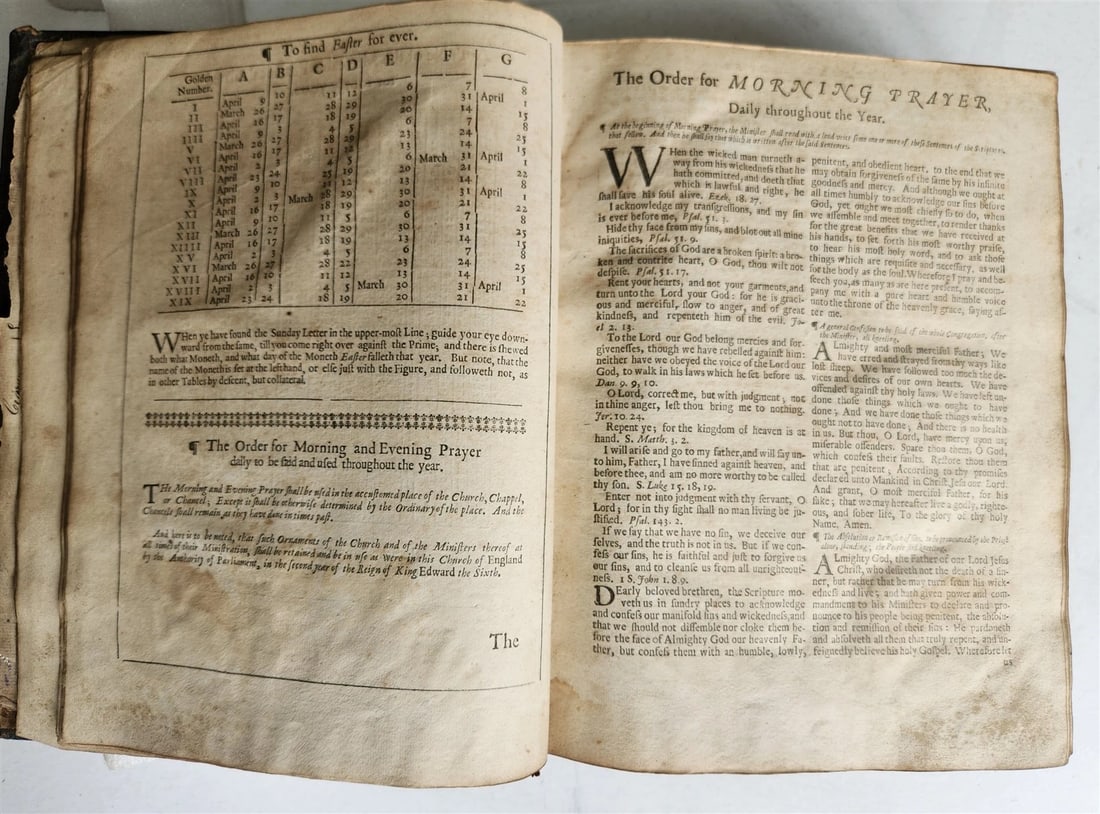 ¶ To find Easter for ever.
Golden Number. A B C D E F G
I April 9 10 11 12 6 7 8
II March 26 27 28 29 30 31 April 1
III April 16 17 18 19 20 14 15
IIII April 9 3 4 5 6 7 8
V March 26 27 28 29 23 24 25
VI April 16 17 11 12 13 14 15
VII April 2 3 4 5 6 March 31 April 1
VIII April 23 24 25 19 20 21 22
IX April 9 10 11 12 13 14 8
X April 2 3 March 28 29 30 31 April 1
XI April 16 17 18 19 20 21 22
XII April 9 10 11 5 6 7 8
XIII March 26 27 28 29 30 31 25
XIIII April 16 17 18 19 13 14 15
XV April 2 3 4 5 6 7 8
XVI March 26 27 28 22 23 24 25
XVII April 16 10 11 12 13 14 15
XVIII April 2 3 4 5 March 30 31 April 1
XIX April 23 24 18 19 20 21 22
WHen ye have found the Sunday Letter in the upper-moſt Line; guide your eye down-
ward from the ſame, till you come right over againſt the Prime; and there is ſhewed
both what Moneth, and what day of the Moneth Eaſter falleth that year. But note, that the
name of the Moneth is ſet at the left hand, or elſe juſt with the Figure, and followeth not, as
in other Tables by deſcent, but collateral.
¶ The Order for Morning and Evening Prayer
daily to be ſaid and uſed throughout the year.
THe Morning and Evening Prayer ſhall be uſed in the accuſtomed place of the Church, Chappel,
or Chancel; Except it ſhall be otherwiſe determined by the Ordinary of the place. And the
Chancels ſhall remain, as they have done in times paſt.
And here is to be noted, that ſuch Ornaments of the Church and of the Miniſters thereof at
all times of their Miniſtration, ſhall be retained and be in uſe as were in this Church of England
by the Authority of Parliament, in the ſecond year of the Reign of King Edward the Sixth.
The
The Order for MORNING PRAYER,
Daily throughout the Year.
¶ At the beginning of Morning Prayer, the Miniſter ſhall read with a loud voice ſome one or more of theſe Sentences of the Scriptures,
that follow. And then he ſhall ſay that which is written after the ſaid Sentences.
WHen the wicked man turneth a-
way from his wickedneſs that he
hath committed, and doeth that
which is lawful and right, he
ſhall ſave his ſoul alive. Ezek. 18. 27.
I acknowledge my tranſgreſſions, and my ſin
is ever before me, Pſal. 51. 3.
Hide thy face from my ſins, and blot out all mine
iniquities, Pſal. 51. 9.
The ſacrifices of God are a broken ſpirit: a bro-
ken and contrite heart, O God, thou wilt not
deſpiſe. Pſal. 51. 17.
Rent your hearts, and not your garments, and
turn unto the Lord your God: for he is graci-
ous and merciful, ſlow to anger, and of great
kindneſs, and repenteth him of the evil. Jo-
el 2. 13.
To the Lord our God belong mercies and for-
giveneſſes, though we have rebelled againſt him:
neither have we obeyed the voice of the Lord our
God, to walk in his laws which he ſet before us.
Dan 9. 9, 10.
O Lord, correct me, but with judgment; not
in thine anger, leſt thou bring me to nothing.
Jer. 10. 24.
Repent ye; for the kingdom of heaven is at
hand. S. Matth. 3. 2.
I will ariſe and go to my father, and will ſay un-
to him, Father, I have ſinned againſt heaven, and
before thee, and am no more worthy to be called
thy ſon. S. Luke 15. 18, 19.
Enter not into judgment with thy ſervant, O
Lord; for in thy ſight ſhall no man living be ju-
ſtified. Pſal. 143. 2.
If we ſay that we have no ſin, we deceive our
ſelves, and the truth is not in us. But if we con-
feſs our ſins, he is faithful and juſt to forgive us
our ſins, and to cleanſe us from all unrighteouſ-
neſs. 1 S. John 1. 8 9.
DEarly beloved brethren, the Scripture mo-
veth us in ſundry places to acknowledge
and confeſs our manifold ſins and wickedneſs, and
that we ſhould not diſſemble nor cloke them be-
fore the face of Almighty God our heavenly Fa-
ther, but confeſs them with an humble, lowly,
penitent, and obedient heart, to the end that we
may obtain forgiveneſs of the ſame by his infinite
goodneſs and mercy. And although we ought at
all times humbly to acknowledge our ſins before
God, yet ought we moſt chiefly ſo to do, when
we aſſemble and meet together, to render thanks
for the great benefits that we have received at
his hands, to ſet forth his moſt worthy praiſe,
to hear his moſt holy word, and to ask thoſe
things which are requiſite and neceſſary, as well
for the body as the ſoul. Wherefore I pray and be-
ſeech you, as many as are here preſent, to accom-
pany me with a pure heart and humble voice
unto the throne of the heavenly grace, ſaying af-
ter me.
¶ A general Confeſſion to be ſaid of the whole Congregation, after
the Miniſter, all kneeling.
ALmighty and moſt merciful Father; We
have erred and ſtrayed from thy ways like
loſt ſheep. We have followed too much the de-
vices and deſires of our own hearts. We have
offended againſt thy holy laws. We have left un-
done thoſe things which we ought to have
done; And we have done thoſe things which we
ought not to have done; And there is no health
in us. But thou, O Lord, have mercy upon us,
miſerable offenders. Spare thou them, O God,
which confeſs their faults. Reſtore thou them
that are penitent; According to thy promiſes
declared unto Mankind in Chriſt Jeſu our Lord.
And grant, O moſt merciful Father, for his
ſake; that we may hereafter live a godly, righte-
ous, and ſober life, To the glory of thy holy
Name. Amen.
¶ The Abſolution or Remiſſion of ſins, to be pronounced by the Prieſt
alone, ſtanding; the People ſtill kneeling.
ALmighty God, the Father of our Lord Jeſus
Chriſt, who deſireth not the death of a ſin-
ner, but rather that he may turn from his wick-
edneſs and live; and hath given power and com-
mandment to his Miniſters to declare and pro-
nounce to his people being penitent, the abſolu-
tion and remiſſion of their ſins: He pardoneth
and abſolveth all them that truly repent, and un-
feignedly believe his holy Goſpel. Wherefore let
us